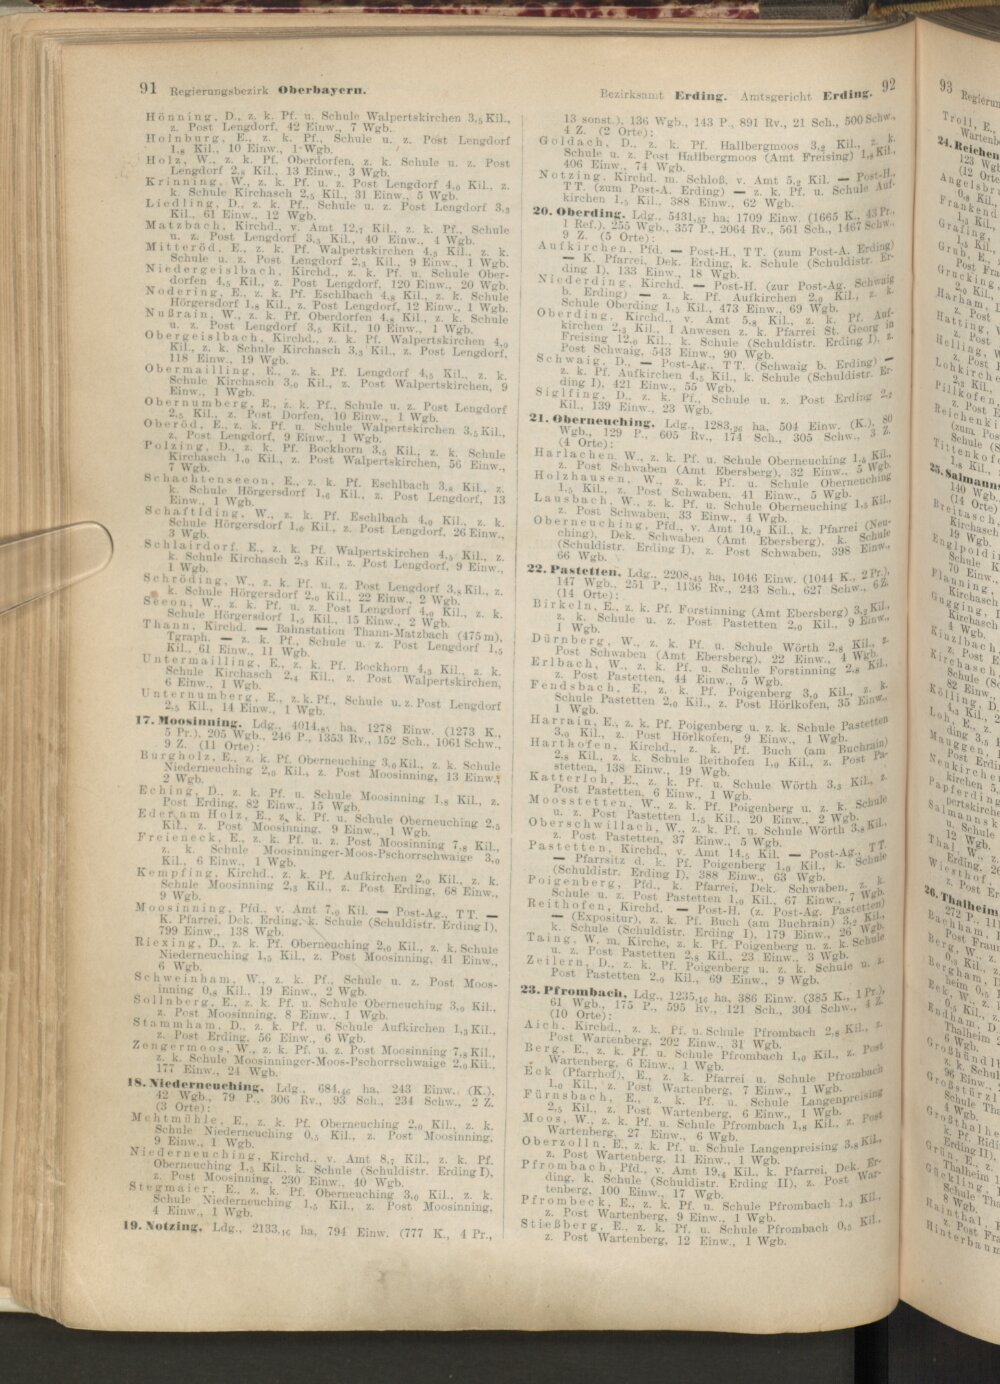 91 Regierungsbezirk Oberbayern.
Hönning, D., z. k. Pf. u. Schule Walpertskirchen 3,5 Kil.,
z. Post Lengdorf, 42 Einw., 7 Wgb.
Holnburg, E., z. k. Pf., Schule u. z. Post Lengdorf
1,8 Kil., 10 Einw., 1 Wgb.
Holz, W., z. k. Pf. Oberdorfen, z. k. Schule u. z. Post
Lengdorf 2,8 Kil., 13 Einw., 3 Wgb.
Krinning, W., z. k. Pf. u. z. Post Lengdorf 4,0 Kil., z.
Schule Kirchasch 2,5 Kil., 31 Einw., 5 Wgb.
Liedling, D., z. k. Pf., Schule u. z. Post Lengdorf 3,3
Kil., 61 Einw., 12 Wgb.
Matzbach, Kirchd., v. Amt 12,7 Kil., z. k. Pf., Schule
u. z. Post Lengdorf 3,5 Kil., 40 Einw., 4 Wgb.
Mitteröd, E., z. k. Pf. Walpertskirchen 4,5 Kil., z. k.
Schule u. z. Post Lengdorf 2,3 Kil., 9 Einw., 1 Wgb.
Niedergeislbach, Kirchd., z. k. Pf. u. Schule Ober-
dorfen 4,5 Kil., z. Post Lengdorf, 120 Einw., 20 Wgb.
Nodering, E., z. k. Pf. Eschlbach 4,8 Kil., z. k. Schule
Hörgersdorf 1,8 Kil., z. Post Lengdorf, 12 Einw., 1 Wgb.
Nußrain, W., z. k. Pf. Oberdorfen 4,8 Kil., z. k. Schule
u. z. Post Lengdorf 3,5 Kil., 10 Einw., 1 Wgb.
Obergeislbach, Kirchd., z. k. Pf. Walpertskirchen 4,0
Kil., z. k. Schule Kirchasch 3,3 Kil., z. Post Lengdorf,
118 Einw., 19 Wgb.
Obermailling, E., z. k. Pf. Lengdorf 4,5 Kil., z. k.
Schule Kirchasch 3,0 Kil., z. Post Walpertskirchen, 9
Einw., 1 Wgb.
Obernumberg, E., z. k. Pf., Schule u. z. Post Lengdorf
2,5 Kil., z. Post Dorfen, 10 Einw., 1 Wgb.
Oberöd, E., z. k. Pf. u. Schule Walpertskirchen 3,5 Kil.,
z. Post Lengdorf, 9 Einw., 1 Wgb.
Polzing, D., z. k. Pf. Bockhorn 3,5 Kil., z. k. Schule
Kirchasch 1,0 Kil., z. Post Walpertskirchen, 56 Einw.,
7 Wgb.
Schachtenseeon, E., z. k. Pf. Eschlbach 3,8 Kil., z.
k. Schule Hörgersdorf 1,6 Kil., z. Post Lengdorf, 13
Einw., 1 Wgb.
Schaftlding, W., z. k. Pf. Eschlbach 4,0 Kil., z. k.
Schule Hörgersdorf 1,0 Kil., z. Post Lengdorf, 26 Einw.,
3 Wgb.
Schlairdorf, E., z. k. Pf. Walpertskirchen 4,5 Kil., z.
k. Schule Kirchasch 2,3 Kil., z. Post Lengdorf, 9 Einw.,
1 Wgb.
Schröding, W., z. k. Pf. u. z. Post Lengdorf 3,8 Kil., z.
k. Schule Hörgersdorf 2,0 Kil., 22 Einw., 2 Wgb.
Seeon, W., z. k. Pf. u. z. Post Lengdorf 4,0 Kil., z. k.
Schule Hörgersdorf 1,5 Kil., 15 Einw., 2 Wgb.
Thann, Kirchd. — Bahnstation Thann-Matzbach (475 m),
Tgraph. — z. k. Pf., Schule u. z. Post Lengdorf 1,5
Kil., 61 Einw., 11 Wgb.
Untermailling, E., z. k. Pf. Bockhorn 4,3 Kil., z. k.
Schule Kirchasch 2,4 Kil., z. Post Walpertskirchen,
6 Einw., 1 Wgb.
Unternumberg, E., z. k. Pf., Schule u. z. Post Lengdorf
2,5 Kil., 14 Einw., 1 Wgb.
17. Moosinning, Ldg., 4014,85 ha, 1278 Einw. (1273 K.,
5 Pr.), 205 Wgb., 246 P., 1353 Rv., 152 Sch., 1061 Schw.,
9 Z. (11 Orte):
Burgholz, E., z. k. Pf. Oberneuching 3,0 Kil., z. k. Schule
Niederneuching 2,0 Kil., z. Post Moosinning, 13 Einw.,
2 Wgb.
Eching, D., z. k. Pf. u. Schule Moosinning 1,8 Kil., z.
Post Erding, 82 Einw., 15 Wgb.
Eder am Holz, E., z. k. Pf. u. Schule Oberneuching 2,5
Kil., z. Post Moosinning, 9 Einw., 1 Wgb.
Freieneck, E., z. k. Pf. u. z. Post Moosinning 7,8 Kil.,
z. k. Schule Moosinninger-Moos-Pschorrschwaige 3,0
Kil., 6 Einw., 1 Wgb.
Kempfing, Kirchd., z. k. Pf. Aufkirchen 2,0 Kil., z. k.
Schule Moosinning 2,3 Kil., z. Post Erding, 68 Einw.,
9 Wgb.
Moosinning, Pfd., v. Amt 7,0 Kil. — Post-Ag., TT. —
K. Pfarrei, Dek. Erding, k. Schule (Schuldistr. Erding I),
799 Einw., 138 Wgb.
Riexing, D., z. k. Pf. Oberneuching 2,0 Kil., z. k. Schule
Niederneuching 1,5 Kil., z. Post Moosinning, 41 Einw.,
6 Wgb.
Schweinham, W., z. k. Pf., Schule u. z. Post Moos-
inning 0,8 Kil., 19 Einw., 2 Wgb.
Sollnberg, E., z. k. Pf. u. Schule Oberneuching 3,0 Kil.,
z. Post Moosinning, 8 Einw., 1 Wgb.
Stammham, D., z. k. Pf. u. Schule Aufkirchen 1,3 Kil.,
z. Post Erding, 56 Einw., 6 Wgb.
Zengermoos, W., z. k. Pf. u. z. Post Moosinning 7,8 Kil.,
z. k. Schule Moosinninger-Moos-Pschorrschwaige 2,0 Kil.,
177 Einw., 24 Wgb.
18. Niederneuching, Ldg., 684,46 ha, 243 Einw. (K.),
42 Wgb., 79 P., 306 Rv., 93 Sch., 234 Schw., 2 Z.
(3 Orte):
Mehtmühle, E., z. k. Pf. Oberneuching 2,0 Kil., z. k.
Schule Niederneuching 0,5 Kil., z. Post Moosinning,
9 Einw., 1 Wgb.
Niederneuching, Kirchd., v. Amt 8,7 Kil., z. k. Pf.
Oberneuching 1,3 Kil., k. Schule (Schuldistr. Erding I),
z. Post Moosinning, 230 Einw., 40 Wgb.
Stegmaier, E., z. k. Pf. Oberneuching 3,0 Kil., z. k.
Schule Niederneuching 1,5 Kil., z. Post Moosinning,
4 Einw., 1 Wgb.
19. Notzing, Ldg., 2133,16 ha, 794 Einw. (777 K., 4 Pr.,
Bezirksamt Erding. Amtsgericht Erding. 92
13 sonst.), 136 Wgb., 143 P., 891 Rv., 21 Sch., 500 Schw.,
4 Z. (2 Orte):
Goldach, D., z. k. Pf. Hallbergmoos 3,2 Kil., z. k.
Schule u. z. Post Hallbergmoos (Amt Freising) 1,8 Kil.,
406 Einw., 74 Wgb.
Notzing, Kirchd. m. Schloß, v. Amt 5,2 Kil. — Post-H.,
TT. (zum Post-A. Erding) — z. k. Pf. u. Schule Auf-
kirchen 1,5 Kil., 388 Einw., 62 Wgb.
20. Oberding, Ldg., 5431,57 ha, 1709 Einw. (1665 K., 43 Pr.,
1 Ref.), 255 Wgb., 357 P., 2064 Rv., 561 Sch., 1467 Schw.,
9 Z. (5 Orte):
Aufkirchen, Pfd. — Post-H., TT. (zum Post-A. Erding)
— K. Pfarrei, Dek. Erding, k. Schule (Schuldistr. Er-
ding I), 133 Einw., 18 Wgb.
Niederding, Kirchd. — Post-H. (zur Post-Ag. Schwaig
b. Erding) — z. k. Pf. Aufkirchen 2,0 Kil., z. k.
Schule Oberding 1,5 Kil., 473 Einw., 69 Wgb.
Oberding, Kirchd., v. Amt 5,8 Kil., z. k. Pf. Auf-
kirchen 2,3 Kil., 1 Anwesen z. k. Pfarrei St. Georg in
Freising 12,0 Kil., k. Schule (Schuldistr. Erding I), z.
Post Schwaig, 543 Einw., 90 Wgb.
Schwaig, D., — Post-Ag., TT. (Schwaig b. Erding) —
z. k. Pf. Aufkirchen 4,5 Kil., k. Schule (Schuldistr. Er-
ding I), 421 Einw., 55 Wgb.
Siglfing, D., z. k. Pf., Schule u. z. Post Erding 2,2
Kil., 139 Einw., 23 Wgb.
21. Oberneuching, Ldg., 1283,96 ha, 504 Einw. (K.), 80
Wgb., 129 P., 605 Rv., 174 Sch., 305 Schw., 3 Z.
(4 Orte):
Harlachen, W., z. k. Pf. u. Schule Oberneuching 1,5 Kil.,
z. Post Schwaben (Amt Ebersberg), 32 Einw., 5 Wgb.
Holzhausen, W., z. k. Pf. u. Schule Oberneuching
1,5 Kil., z. Post Schwaben, 41 Einw., 5 Wgb.
Lausbach, W., z. k. Pf. u. Schule Oberneuching 1,3 Kil.,
z. Post Schwaben, 33 Einw., 4 Wgb.
Oberneuching, Pfd., v. Amt 10,2 Kil., k. Pfarrei (Neu-
ching), Dek. Schwaben (Amt Ebersberg), k. Schule
(Schuldistr. Erding I), z. Post Schwaben, 398 Einw.,
66 Wgb.
22. Pastetten, Ldg., 2208,45 ha, 1046 Einw. (1044 K., 2 Pr.),
147 Wgb., 251 P., 1136 Rv., 243 Sch., 627 Schw., 6 Z.
(14 Orte):
Birkeln, E., z. k. Pf. Forstinning (Amt Ebersberg) 3,2 Kil.,
z. k. Schule u. z. Post Pastetten 2,0 Kil., 9 Einw.,
1 Wgb.
Dürnberg, W., z. k. Pf. u. Schule Wörth 2,8 Kil., z.
Post Schwaben (Amt Ebersberg), 22 Einw., 4 Wgb.
Erlbach, W., z. k. Pf. u. Schule Forstinning 2,8 Kil.,
z. Post Pastetten, 44 Einw., 5 Wgb.
Fendsbach, E., z. k. Pf. Poigenberg 3,0 Kil., z. k.
Schule Pastetten 2,0 Kil., z. Post Hörlkofen, 35 Einw.,
1 Wgb.
Harrain, E., z. k. Pf. Poigenberg u. z. k. Schule Pastetten
3,0 Kil., z. Post Hörlkofen, 9 Einw., 1 Wgb.
Harthofen, Kirchd., z. k. Pf. Buch (am Buchrain)
2,8 Kil., z. k. Schule Reithofen 1,0 Kil., z. Post Pa-
stetten, 138 Einw., 19 Wgb.
Katterloh, E., z. k. Pf. u. Schule Wörth 3,3 Kil., z.
Post Pastetten, 6 Einw., 1 Wgb.
Moosstetten, W., z. k. Pf. Poigenberg u. z. k. Schule
u. z. Post Pastetten 1,5 Kil., 20 Einw., 2 Wgb.
Oberschwillach, W., z. k. Pf. u. Schule Wörth 3,8 Kil.,
z. Post Pastetten, 37 Einw., 5 Wgb.
Pastetten, Kirchd., v. Amt 14,5 Kil. — Post-Ag., TT.
— Pfarrsitz d. k. Pf. Poigenberg 1,0 Kil., k. Schule
(Schuldistr. Erding I), 388 Einw., 63 Wgb.
Poigenberg, Pfd., k. Pfarrei, Dek. Schwaben, z. k.
Schule u. z. Post Pastetten 1,0 Kil., 67 Einw., 7 Wgb.
Reithofen, Kirchd. — Post-H. (z. Post-Ag. Pastetten)
— (Expositur), z. k. Pf. Buch (am Buchrain) 3,2 Kil.,
k. Schule (Schuldistr. Erding I), 179 Einw., 26 Wgb.
Taing, W. m. Kirche, z. k. Pf. Poigenberg u. z. k. Schule
u. z. Post Pastetten 2,8 Kil., 23 Einw., 3 Wgb.
Zeilern, D., z. k. Pf. Poigenberg u. z. k. Schule u. z.
Post Pastetten 2,0 Kil., 69 Einw., 9 Wgb.
23. Pfrombach, Ldg., 1235,16 ha, 386 Einw. (385 K., 1 Pr.),
61 Wgb., 175 P., 595 Rv., 121 Sch., 304 Schw., 4 Z.
(10 Orte):
Aich, Kirchd., z. k. Pf. u. Schule Pfrombach 2,8 Kil., z.
Post Wartenberg, 202 Einw., 31 Wgb.
Berg, E., z. k. Pf. u. Schule Pfrombach 1,0 Kil., z. Post
Wartenberg, 6 Einw., 1 Wgb.
Eck (Pfarrhof), E., z. k. Pfarrei u. Schule Pfrombach
1,0 Kil., z. Post Wartenberg, 7 Einw., 1 Wgb.
Fürnsbach, E., z. k. Pf. u. Schule Langenpreising
2,5 Kil., z. Post Wartenberg, 6 Einw., 1 Wgb.
Moos, W., z. k. Pf. u. Schule Pfrombach 1,8 Kil., z. Post
Wartenberg, 27 Einw., 6 Wgb.
Oberzolln, E., z. k. Pf. u. Schule Langenpreising 3,8 Kil.,
z. Post Wartenberg, 11 Einw., 1 Wgb.
Pfrombach, Pfd., v. Amt 19,4 Kil., k. Pfarrei, Dek. Er-
ding, k. Schule (Schuldistr. Erding II), z. Post War-
tenberg, 100 Einw., 17 Wgb.
Pfrombeck, E., z. k. Pf. u. Schule Pfrombach 1,3 Kil.,
z. Post Wartenberg, 9 Einw., 1 Wgb.
Stießberg, E., z. k. Pf. u. Schule Pfrombach 0,5 Kil.,
z. Post Wartenberg, 12 Einw., 1 Wgb.
93
Troll, E.,
24. Reichen
25. Salmanns
26. Thalheim